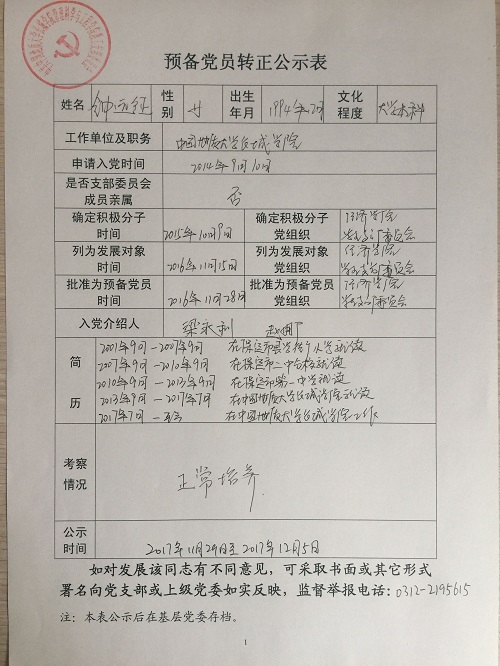 预备党员转正公示表
姓名 性别 女 出生年月 1994年2月 文化程度 大学本科
工作单位及职务 中国地质大学长城学院
申请入党时间 2014年9月10日
是否支部委员会成员亲属 否
确定积极分子时间 2015年10月9日 确定积极分子党组织 经济学院 委员会
列为发展对象时间 2016年11月15日 列为发展对象党组织 经济学院 委员会
批准为预备党员时间 2016年11月28日 批准为预备党员党组织 经济学院 委员会
入党介绍人 梁永利
简历
2001年9月-2007年9月 小学就读
2007年9月-2010年9月 在保定市二中分校就读
2010年9月-2013年9月 在保定市第一中学就读
2013年9月-2017年7月 在中国地质大学长城学院就读
2017年7月-至今 在中国地质大学长城学院工作
考察情况 正常培养
公示时间 2017年11月29日至2017年12月5日
如对发展该同志有不同意见,可采取书面或其它形式
署名向党支部或上级党委如实反映,监督举报电话:0312-2195615
注:本表公示后在基层党委存档。
1